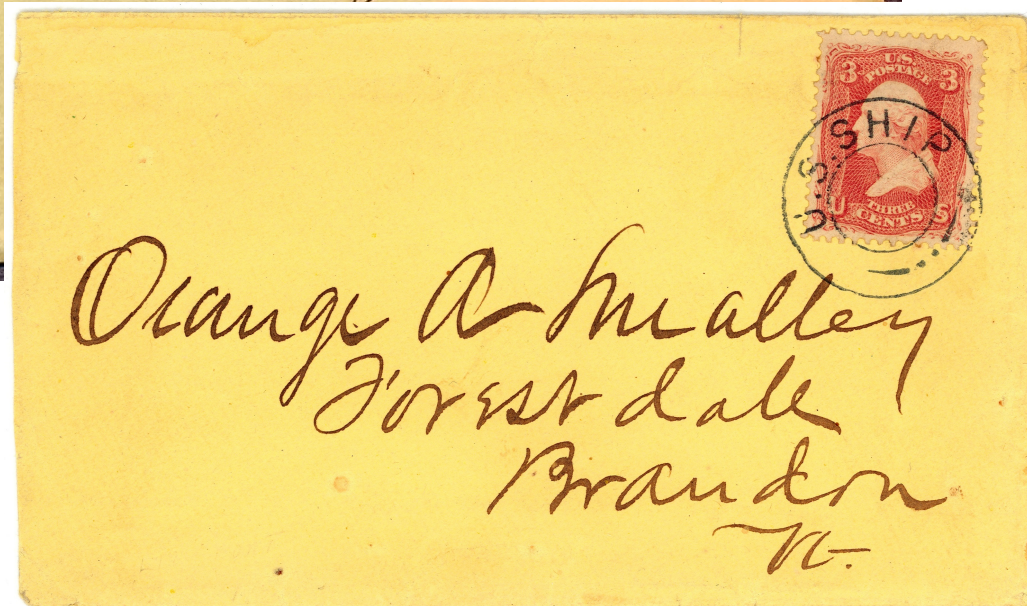 3 U.S. 3
POSTAGE
U.S. SHIP
U THREE S
CENTS
Orange A Smalley
Forestdale
Brandon
Vt.